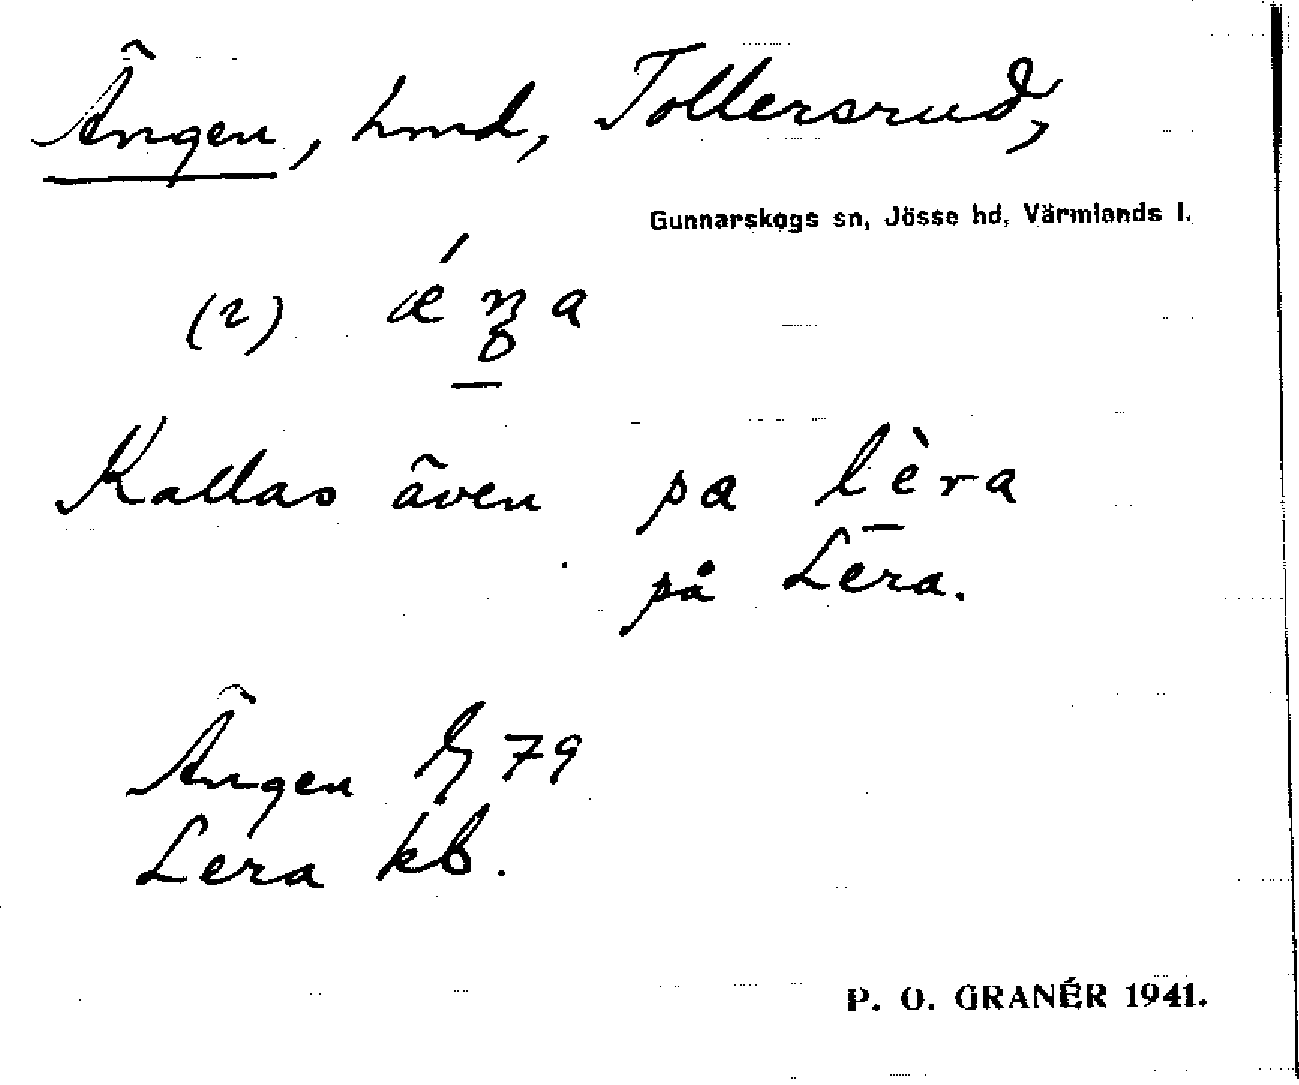 Ängen, hmd, Tollersrud,
Gunnarskogs sn, Jösse hd, Värmlands l.
(2) ǽŋa
Kallas även pa lèra
på Lera.
Ängen 79
Lera kb.
P. O. GRANÉR 1941.